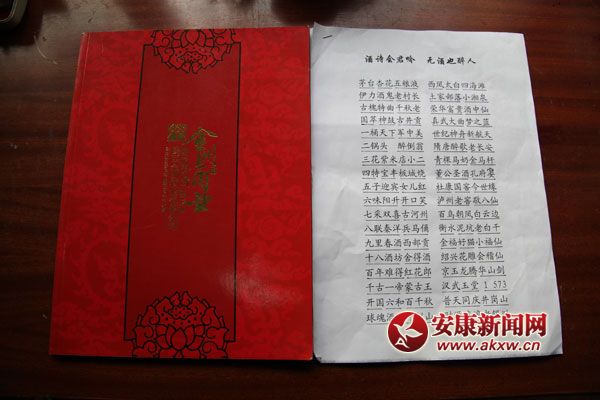 酒诗会君吟 无酒也醉人
茅台杏花五粮液 西凤太白四海滩
伊力酒鬼老村长 土家部落小湘泉
古槐特曲千秋老 荣华富贵酒中仙
国萃神鼓古井贡 真武大曲梦之蓝
一桶天下军中美 世纪神舟新航天
二锅头 醉倒翁 隋唐醉歌老长安
三花紫米店小二 青稞马奶金马杆
四特宝丰板城烧 董公圣酒孔府宴
五子迎宾女儿红 杜康国客今世缘
六味阳升开口笑 泸州老窖歌八仙
七采双喜古河州 百鸟朝凤白云边
八联秦洋兵马俑 衡水泥坑老白干
九里春酒西部贡 金福好猫小福仙
十八酒坊舍得酒 绍兴花雕会稽仙
百年难得红花郎 京玉龙腾华山剑
千古一帝蒙古王 汉武玉堂1573
开国六和百千秋 普天同庆井岗山
球瑰酒
安康新闻网
www.akxw.cn